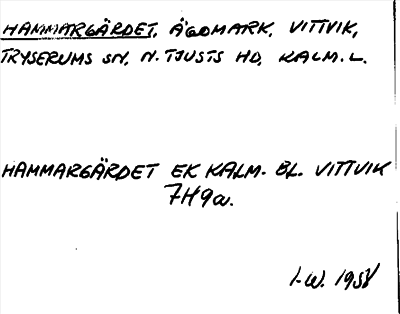 HAMMARGÄRDET, ÄGOMARK, VITTVIK,
TRYSERUMS SN, N. TJUSTS HD, KALM. L.
HAMMARGÄRDET EK KALM. BL. VITTVIK
7H9a.
I-W. 1958